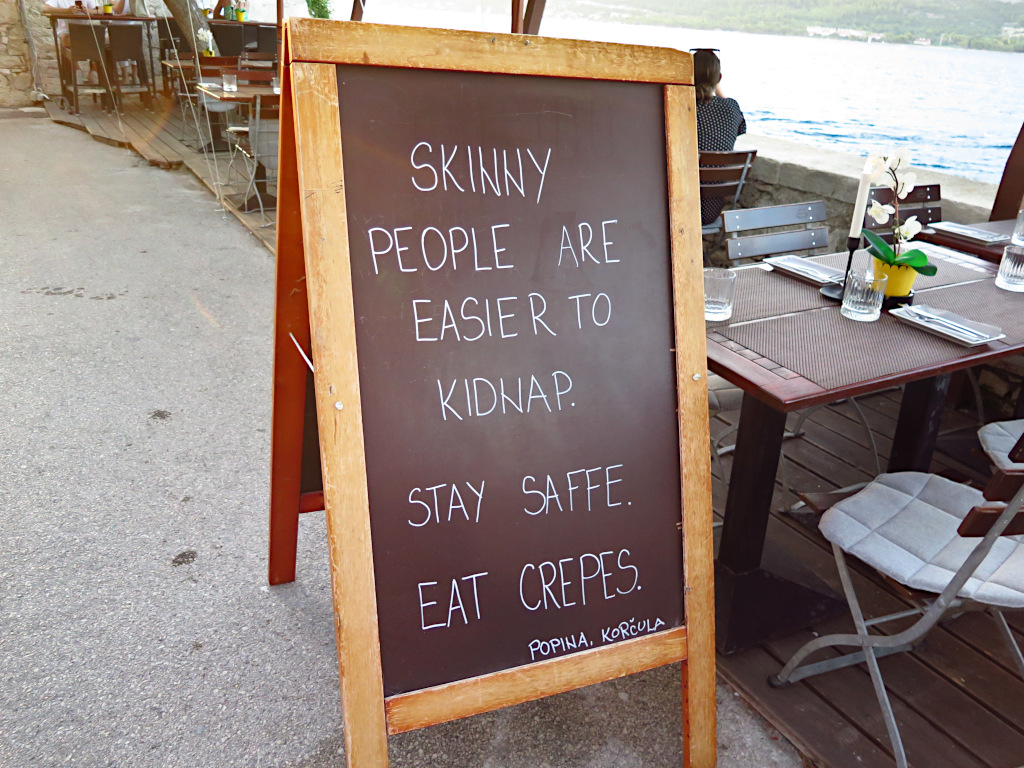 SKINNY
PEOPLE ARE
EASIER TO
KIDNAP.
STAY SAFFE.
EAT CREPES.
POPINA, KORČULA